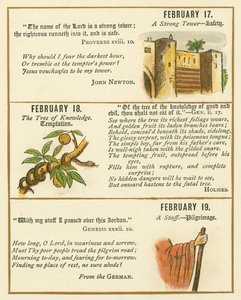 "The name of the Lord is a strong tower;
the righteous runneth into it, and is safe.
PROVERBS xviii. 10.
Why should I fear the darkest hour,
Or tremble at the tempter's power!
Jesus vouchsafes to be my tower.
JOHN NEWTON.
FEBRUARY 17.
A Strong Tower—Safety.
FEBRUARY 18.
The Tree of Knowledge.
Temptation.
"Of the tree of the knowledge of good and
evil, thou shalt not eat of it."—GEN. ii. 17.
See where the tree its richest foliage wears,
And golden fruit its laden branches bear;
Behold, conceal'd beneath its shade, sidelong,
The glossy serpent, with its poisonous tongue;
The simple boy, far from his father's care,
Is well-nigh taken with the gilded snare.
The tempting fruit, outspread before his
eyes,
Fills him with rapture, and complete
surprise;
No hidden dangers will he wait to see,
But onward hastens to the fatal tree.
HOLMES.
"With my staff I passed over this Jordan."
GENESIS xxxii. 10.
How long, O Lord, in weariness and sorrow,
Must Thy poor people tread the pilgrim road;
Mourning to-day, and fearing for to-morrow.
Finding no place of rest, no sure abode?
From the GERMAN.
FEBRUARY 19.
A Staff.—Pilgrimage.